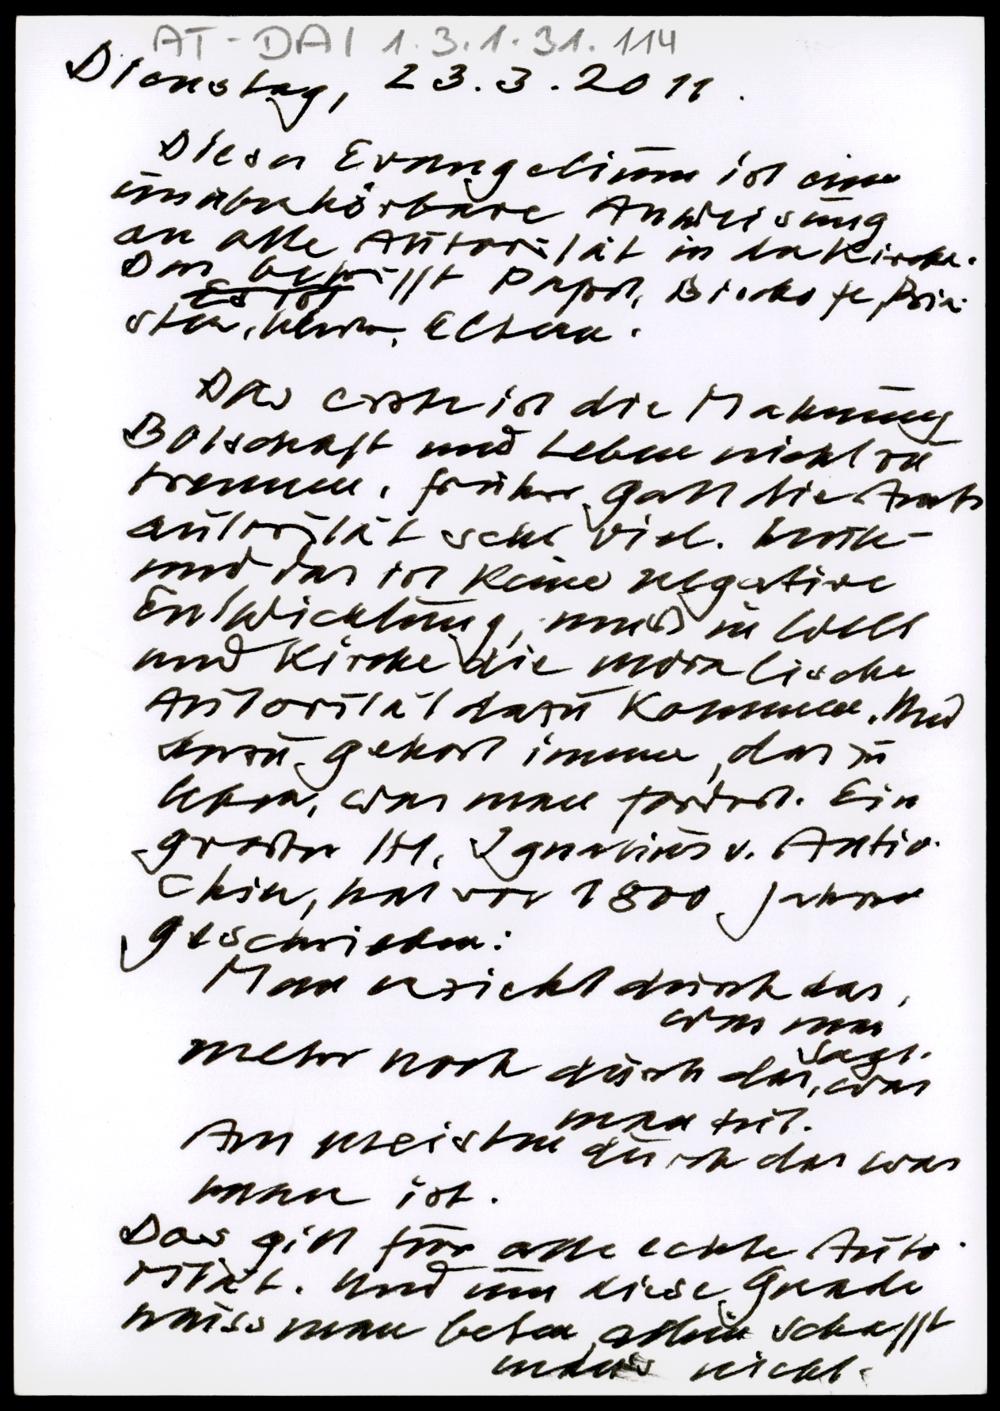 AT-DAI 1.3.1.31.114
Dienstag, 23.3.2011.
Dieses Evangelium ist eine
unüberhörbare Anweisung
an alle Autorität in der Kirche.
Das betrifft Papst, Bischöfe, Prie-
Es ist
ster, Eltern.
Das erste ist die Mahnung
Botschaft und Leben nicht zu
trennen. Früher galt die Amts
autorität sehr viel. heute -
und das ist keine negative
Entwicklung, muß in Welt
und Kirche die moralische
Autorität dazu kommen. Und
dazu gehört immer, das zu
leben, was man fordert. Ein
großer Hl. Ignatius v. Antio-
chien, hat vor 1800 Jahren
geschrieben:
Man erzieht durch das,
was man
sagt.
mehr noch durch das, was
man tut.
Am meisten durch das was
man ist.
Das gilt für alle echte Auto-
rität. Und um diese Gnade
muss man beten, allein schafft
man's nicht.